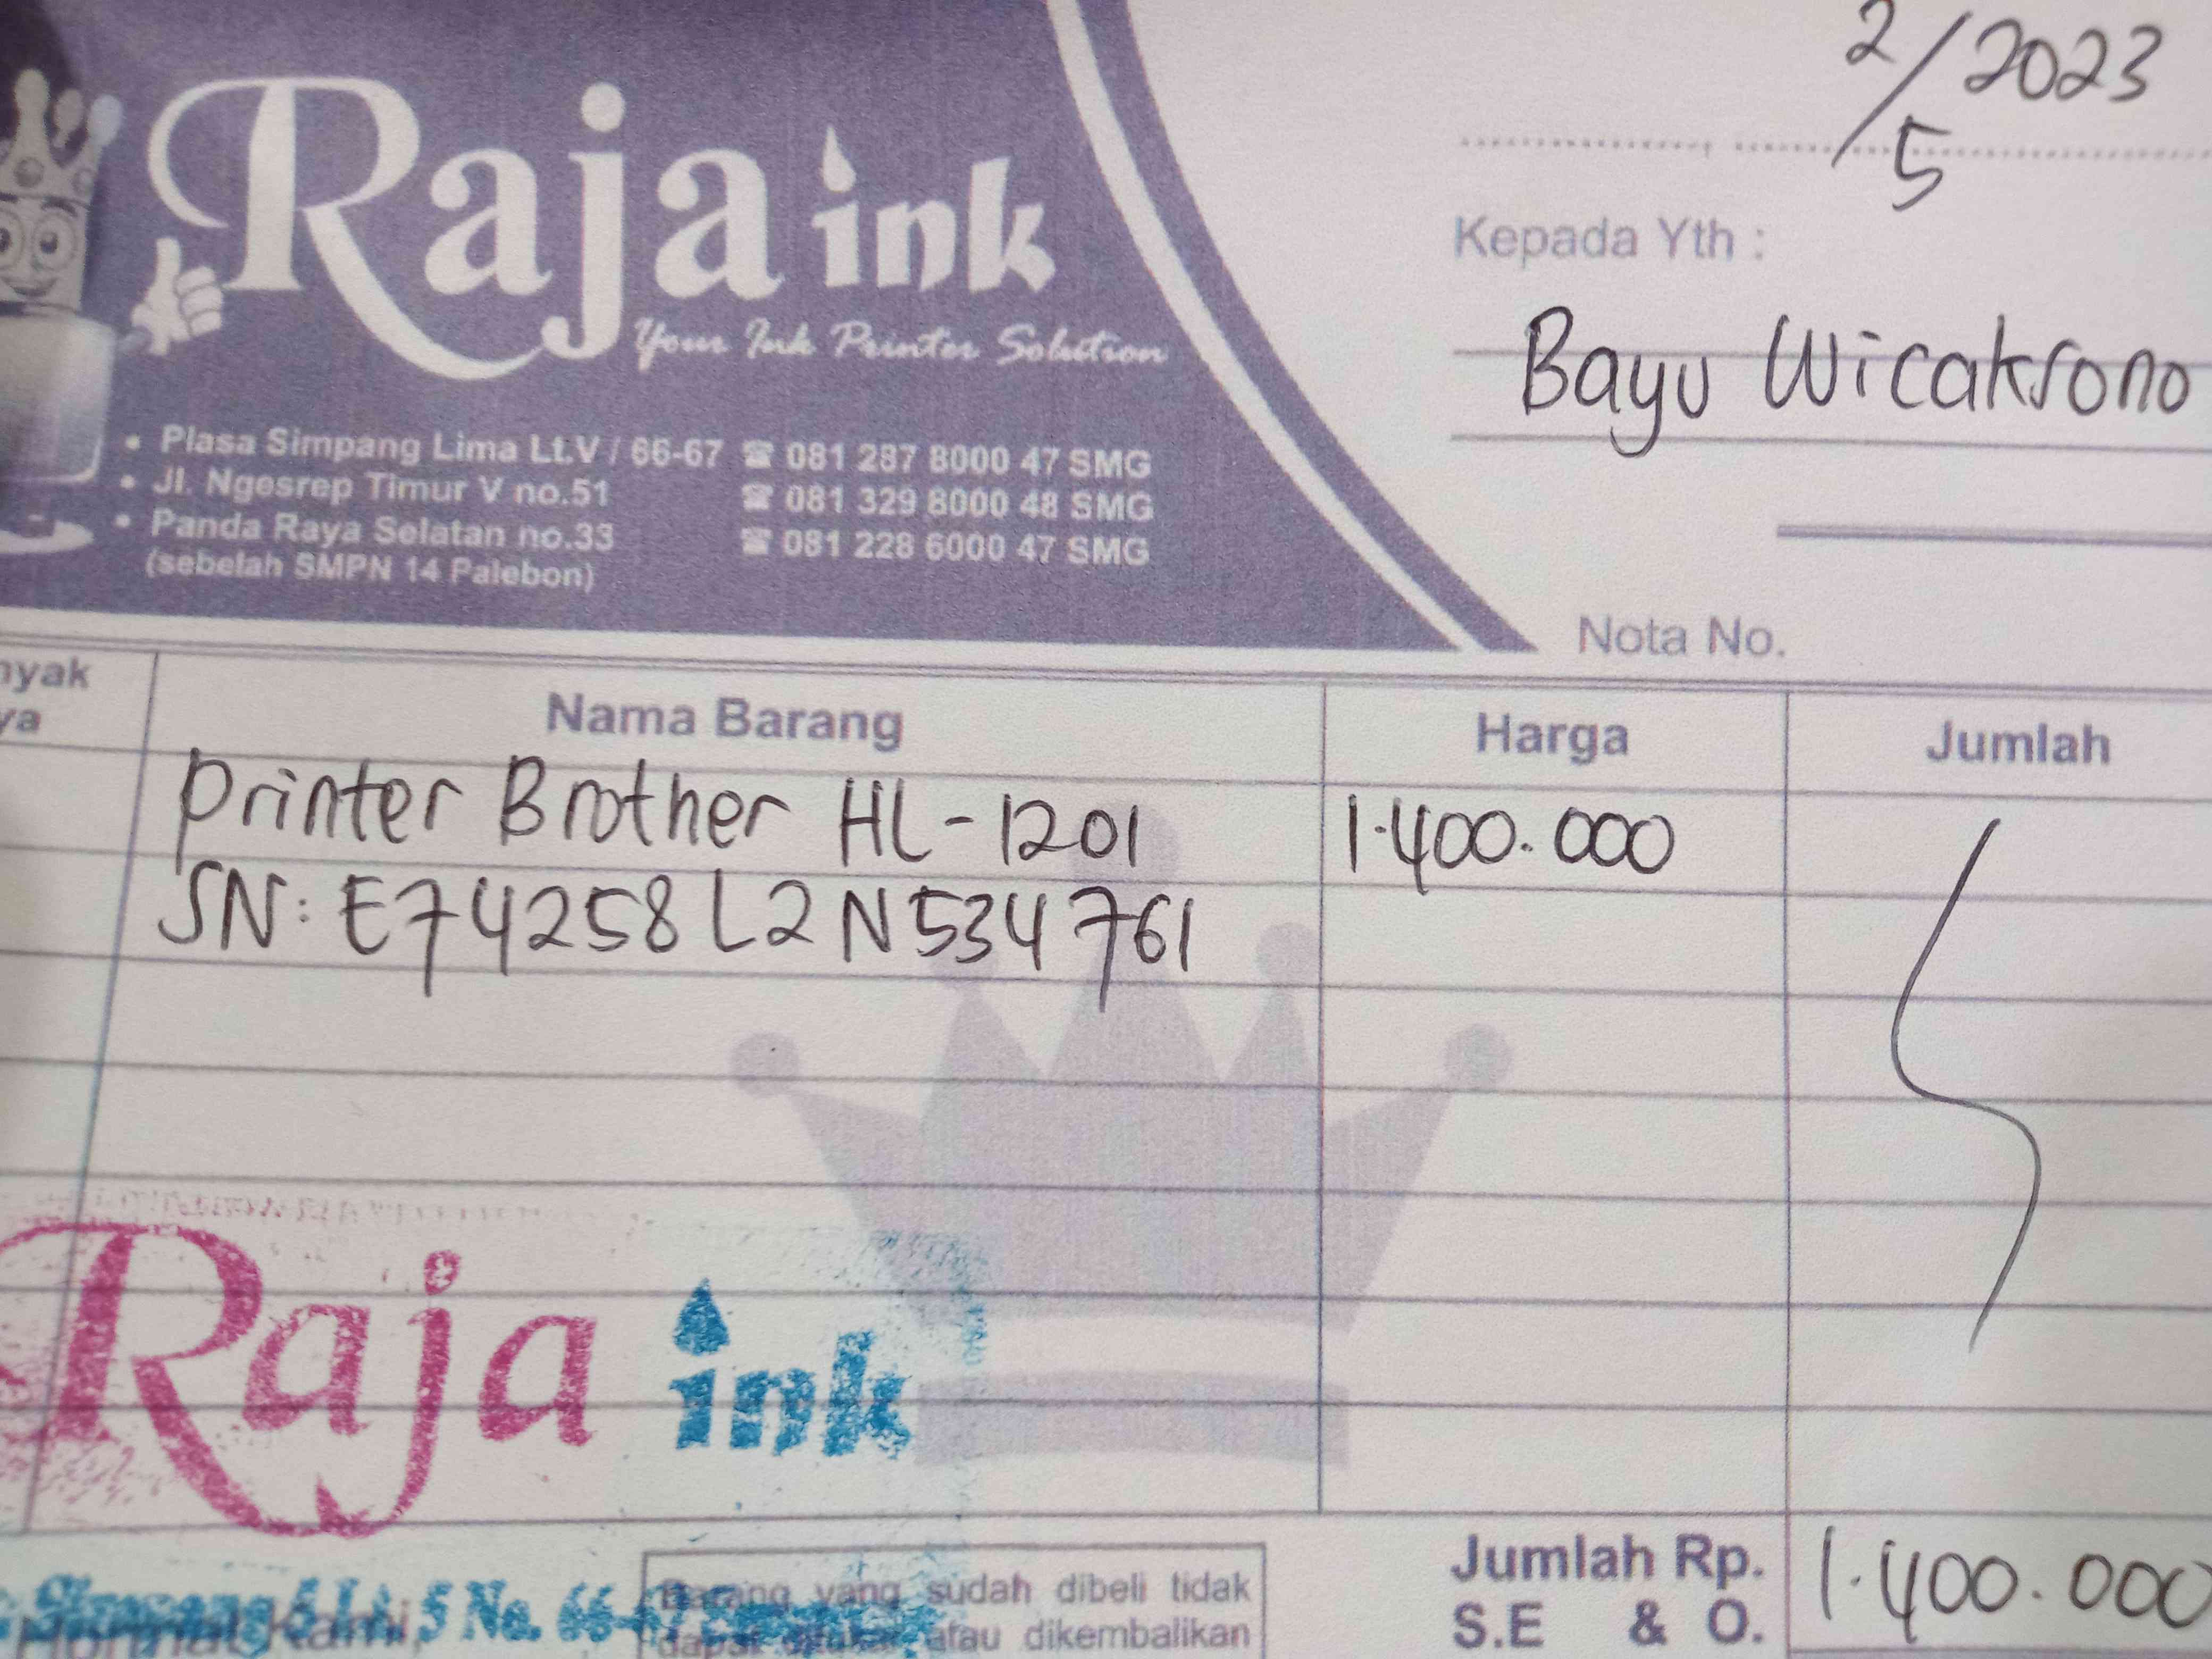 Raja ink
Your Ink Printer Solution
• Plasa Simpang Lima Lt.V / 66-67 ☎ 081 287 8000 47 SMG
• Jl. Ngesrep Timur V no.51 ☎ 081 329 8000 48 SMG
• Panda Raya Selatan no.33 ☎ 081 228 6000 47 SMG
(sebelah SMPN 14 Palebon)
2/5/2023
Kepada Yth :
Bayu Wicaksono
Nota No.
nyak
ya
Nama Barang Harga Jumlah
Printer Brother HL-1201 1.400.000
SN: E74258L2N534761
Raja ink
Simpang 5 Lt. 5 No. 66-67
Hormat Kami,
Barang yang sudah dibeli tidak
dapat ditukar atau dikembalikan
Jumlah Rp. 1.400.000
S.E & O.